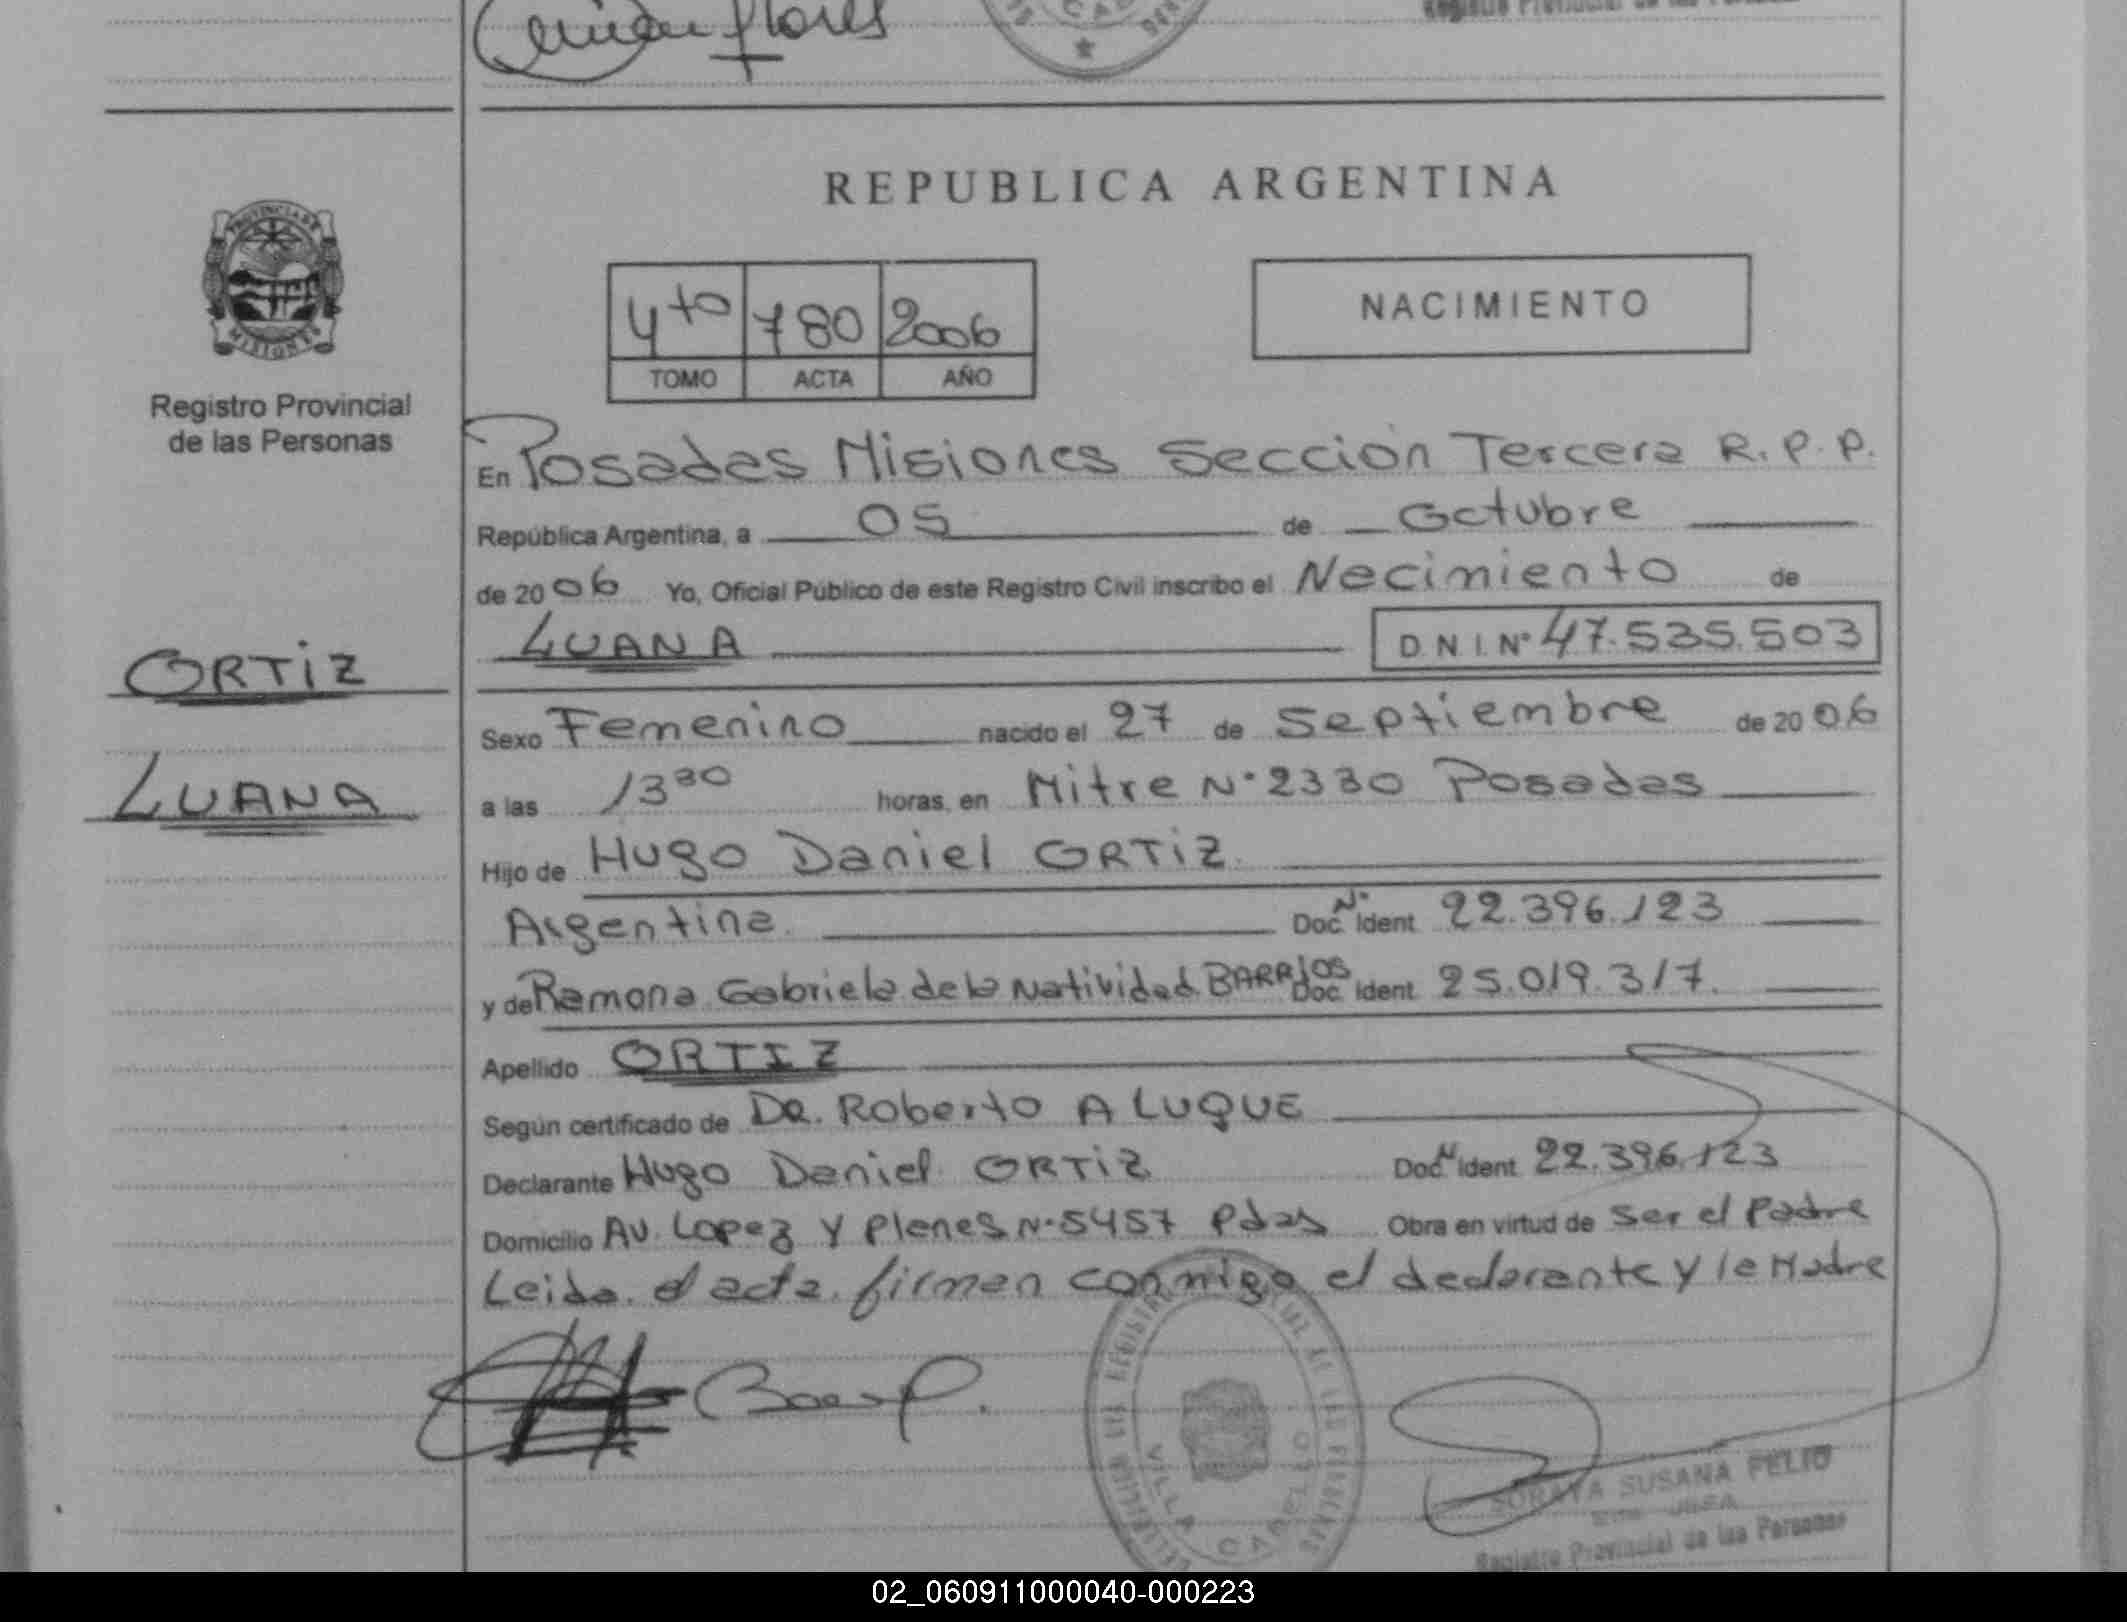 Flores
Registro Provincial de las Personas
REPUBLICA ARGENTINA
PROVINCIA DE
MISIONES
4to 780 2006
TOMO ACTA AÑO
NACIMIENTO
Registro Provincial
de las Personas
En Posadas Misiones Sección Tercera R.P.P.
República Argentina, a 05 de Octubre
de 2006 Yo, Oficial Público de este Registro Civil inscribo el Nacimiento de
LUANA D.N.I.Nº 47.535.503
ORTIZ
LUANA
Sexo Femenino nacido el 27 de Septiembre de 2006
a las 13 30 horas, en Mitre Nº 2330 Posadas
Hijo de Hugo Daniel ORTIZ
Argentina Doc. Nº Ident 22.396.123
y de Ramona Gabriela de la Natividad BARRIOS Doc. Ident 25.019.317.
Apellido ORTIZ
Según certificado de DR. Roberto A LUQUE
Declarante Hugo Daniel ORTIZ Doc. N Ident 22.396.123
Domicilio AV. Lopez y Planes Nº 5457 Pdas Obra en virtud de Ser el Padre
Leida el acta firman conmigo el declarante y la Madre
VILLA CABELLO
SORAYA SUSANA FELIU
Registro Provincial de las Personas
02_060911000040-000223